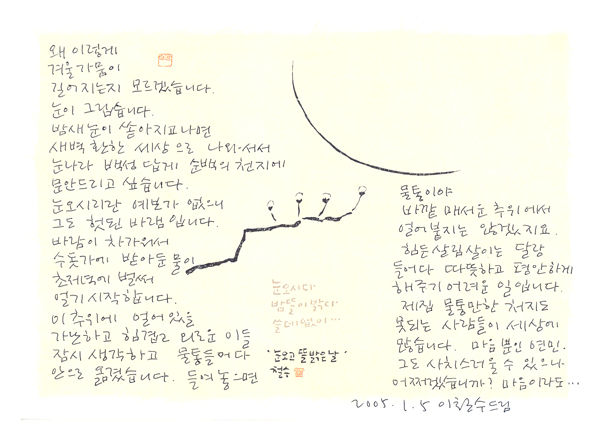 왜 이렇게
겨울가뭄이
길어지는지 모르겠습니다.
눈이 그립습니다.
밤새 눈이 쏟아지고나면
새벽 환한 세상으로 나와·서서
눈나라 백성 답게 순백의 천지에
문안드리고 싶습니다.
눈오시리란 예보가 없으니
그도 헛된 바램입니다.
바람이 차가워서
수돗가에 받아둔 물이
초저녁에 벌써
얼기 시작합니다.
이 추위에 얼어있을
가난하고 힘겹고 외로운 이들
잠시 생각하고 물통들어다
안으로 옮겼습니다. 들여놓으면
물통이야
바깥 매서운 추위에서
얼어붙지는 않겠지요.
힘든 살림살이는 달랑
들어다 따뜻하고 평안하게
해주기 어려운 일입니다.
제집 물통만한 처지도
못되는 사람들이 세상에
많습니다. 마음뿐인 연민.
그도 사치스러울 수 있으나
어쩌겠습니까? 마음이라도…
눈오시다
밤뜰이 밝다
쓸데없이…
'눈오고 뜰 밝은 날'
철수
2005. 1. 5 이철수드림